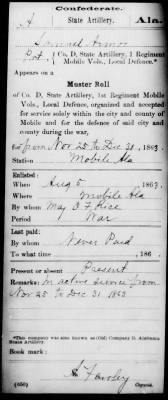 Confederate.
A State Artillery. Ala.
Samuel Armor
Pvt. { Co. D, State Artillery, 1 Regiment
Mobile Vols., Local Defence.*
Appears on a
Muster Roll
of Co. D, State Artillery, 1st Regiment Mobile
Vols., Local Defence, organized and accepted
for service solely within the city and county of
Mobile and for the defence of said city and
county during the war,
for from Nov 25 to Dec 31, 1863.
Station Mobile Ala
Enlisted:
When Aug 5, 1863.
Where Mobile Ala
By whom
Period War
Last paid:
By whom Never Paid
To what time , 186 .
Present or absent Present
Remarks: In active service from
Nov 25 to Dec 31 1863
*This company was also known as (Old) Company D, Alabama
State Artillery.
Book mark:
(656) Copyist.